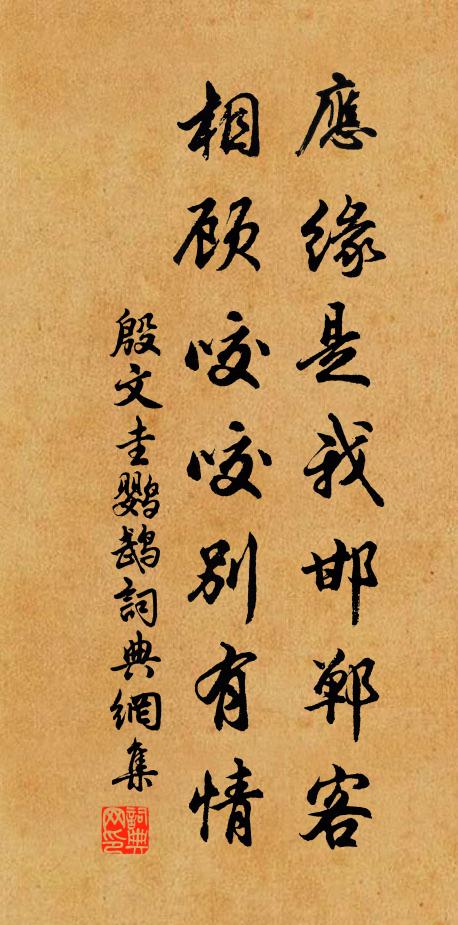 應緣是我邯鄲客
相顾咬咬別有情
殷文圭鹦鵡詞典網集
詞典
网印